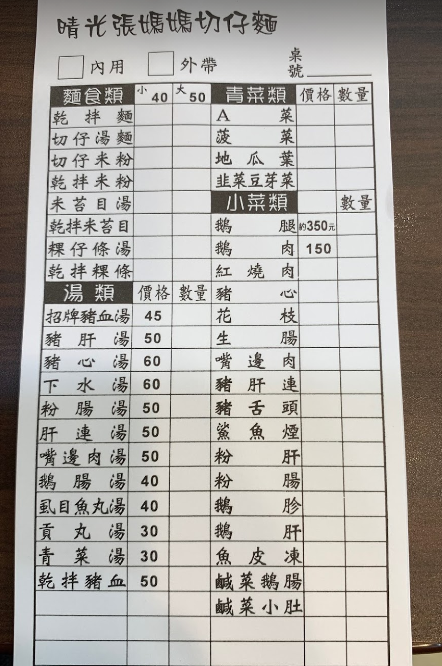 晴光張媽媽切仔麵
內用 外帶 桌號
麵食類 小40 大50
乾拌麵
切仔湯麵
切仔米粉
乾拌米粉
米苔目湯
乾拌米苔目
粿仔條湯
乾拌粿條
湯類 價格 數量
招牌豬血湯 45
豬肝湯 50
豬心湯 60
下水湯 60
粉腸湯 50
肝連湯 50
嘴邊肉湯 50
鵝腸湯 40
虱目魚丸湯 40
貢丸湯 30
青菜湯 30
乾拌豬血 50
青菜類 價格 數量
A菜
菠菜
地瓜葉
韭菜豆芽菜
小菜類 數量
鵝腿 約350元
鵝肉 150
紅燒肉
豬心
花枝
生腸
嘴邊肉
豬肝連
豬舌頭
鯊魚煙
粉肝
粉腸
鵝胗
鵝肝
魚皮凍
鹹菜鵝腸
鹹菜小肚